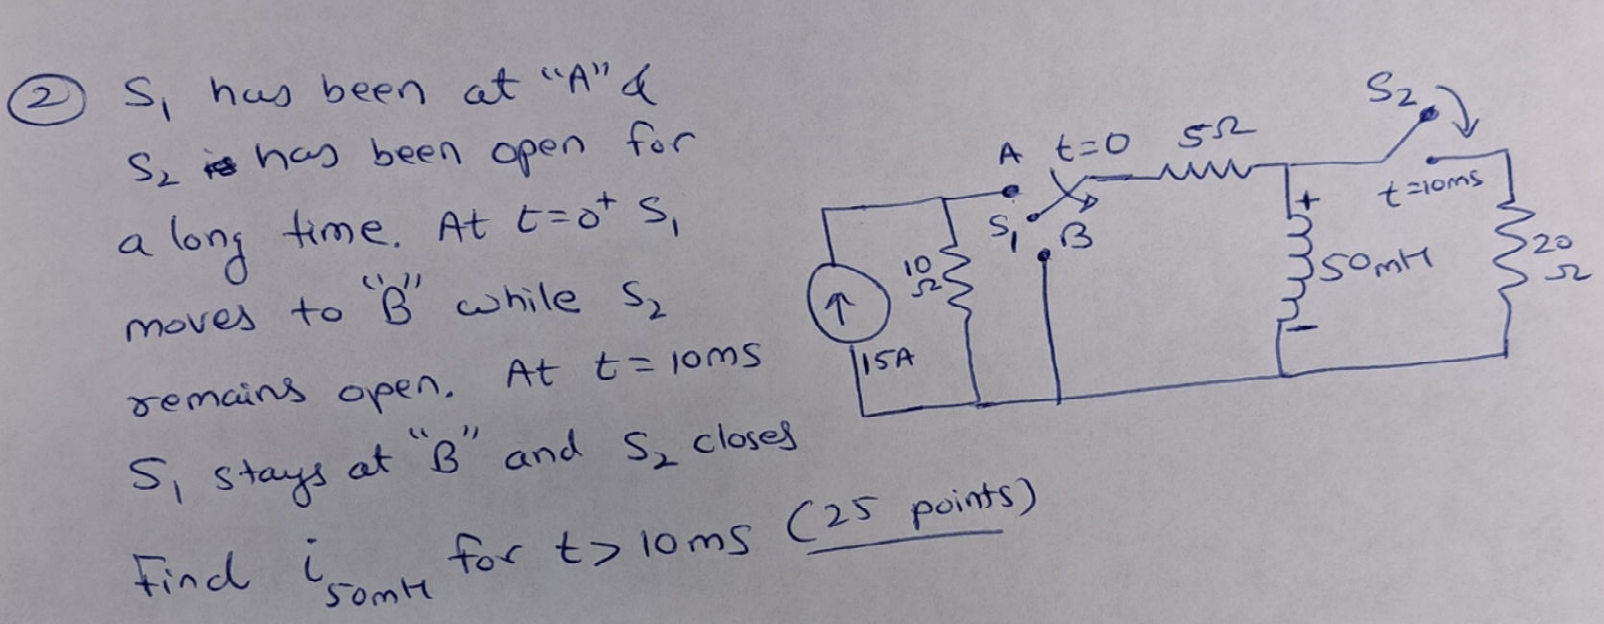 2 S₁ has been at "A" &
S₂ has been open for
a long time. At t=0⁺ S₁
moves to "B" while S₂
remains open. At t=10ms
S₁ stays at "B" and S₂ closes
Find i50mH for t>10ms (25 points)
S₂
A t=0 5Ω
t=10ms
S₁ B
+
10Ω
50mH
20Ω
15A
-